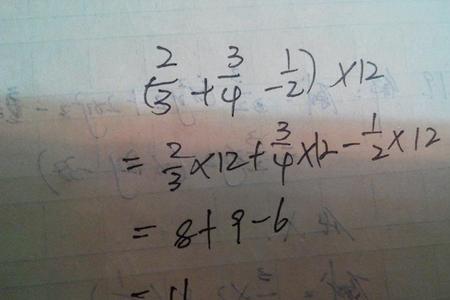 (2/3 + 3/4 - 1/2) ×12
= 2/3 ×12 + 3/4 ×12 - 1/2 ×12
= 8 + 9 - 6
= 11